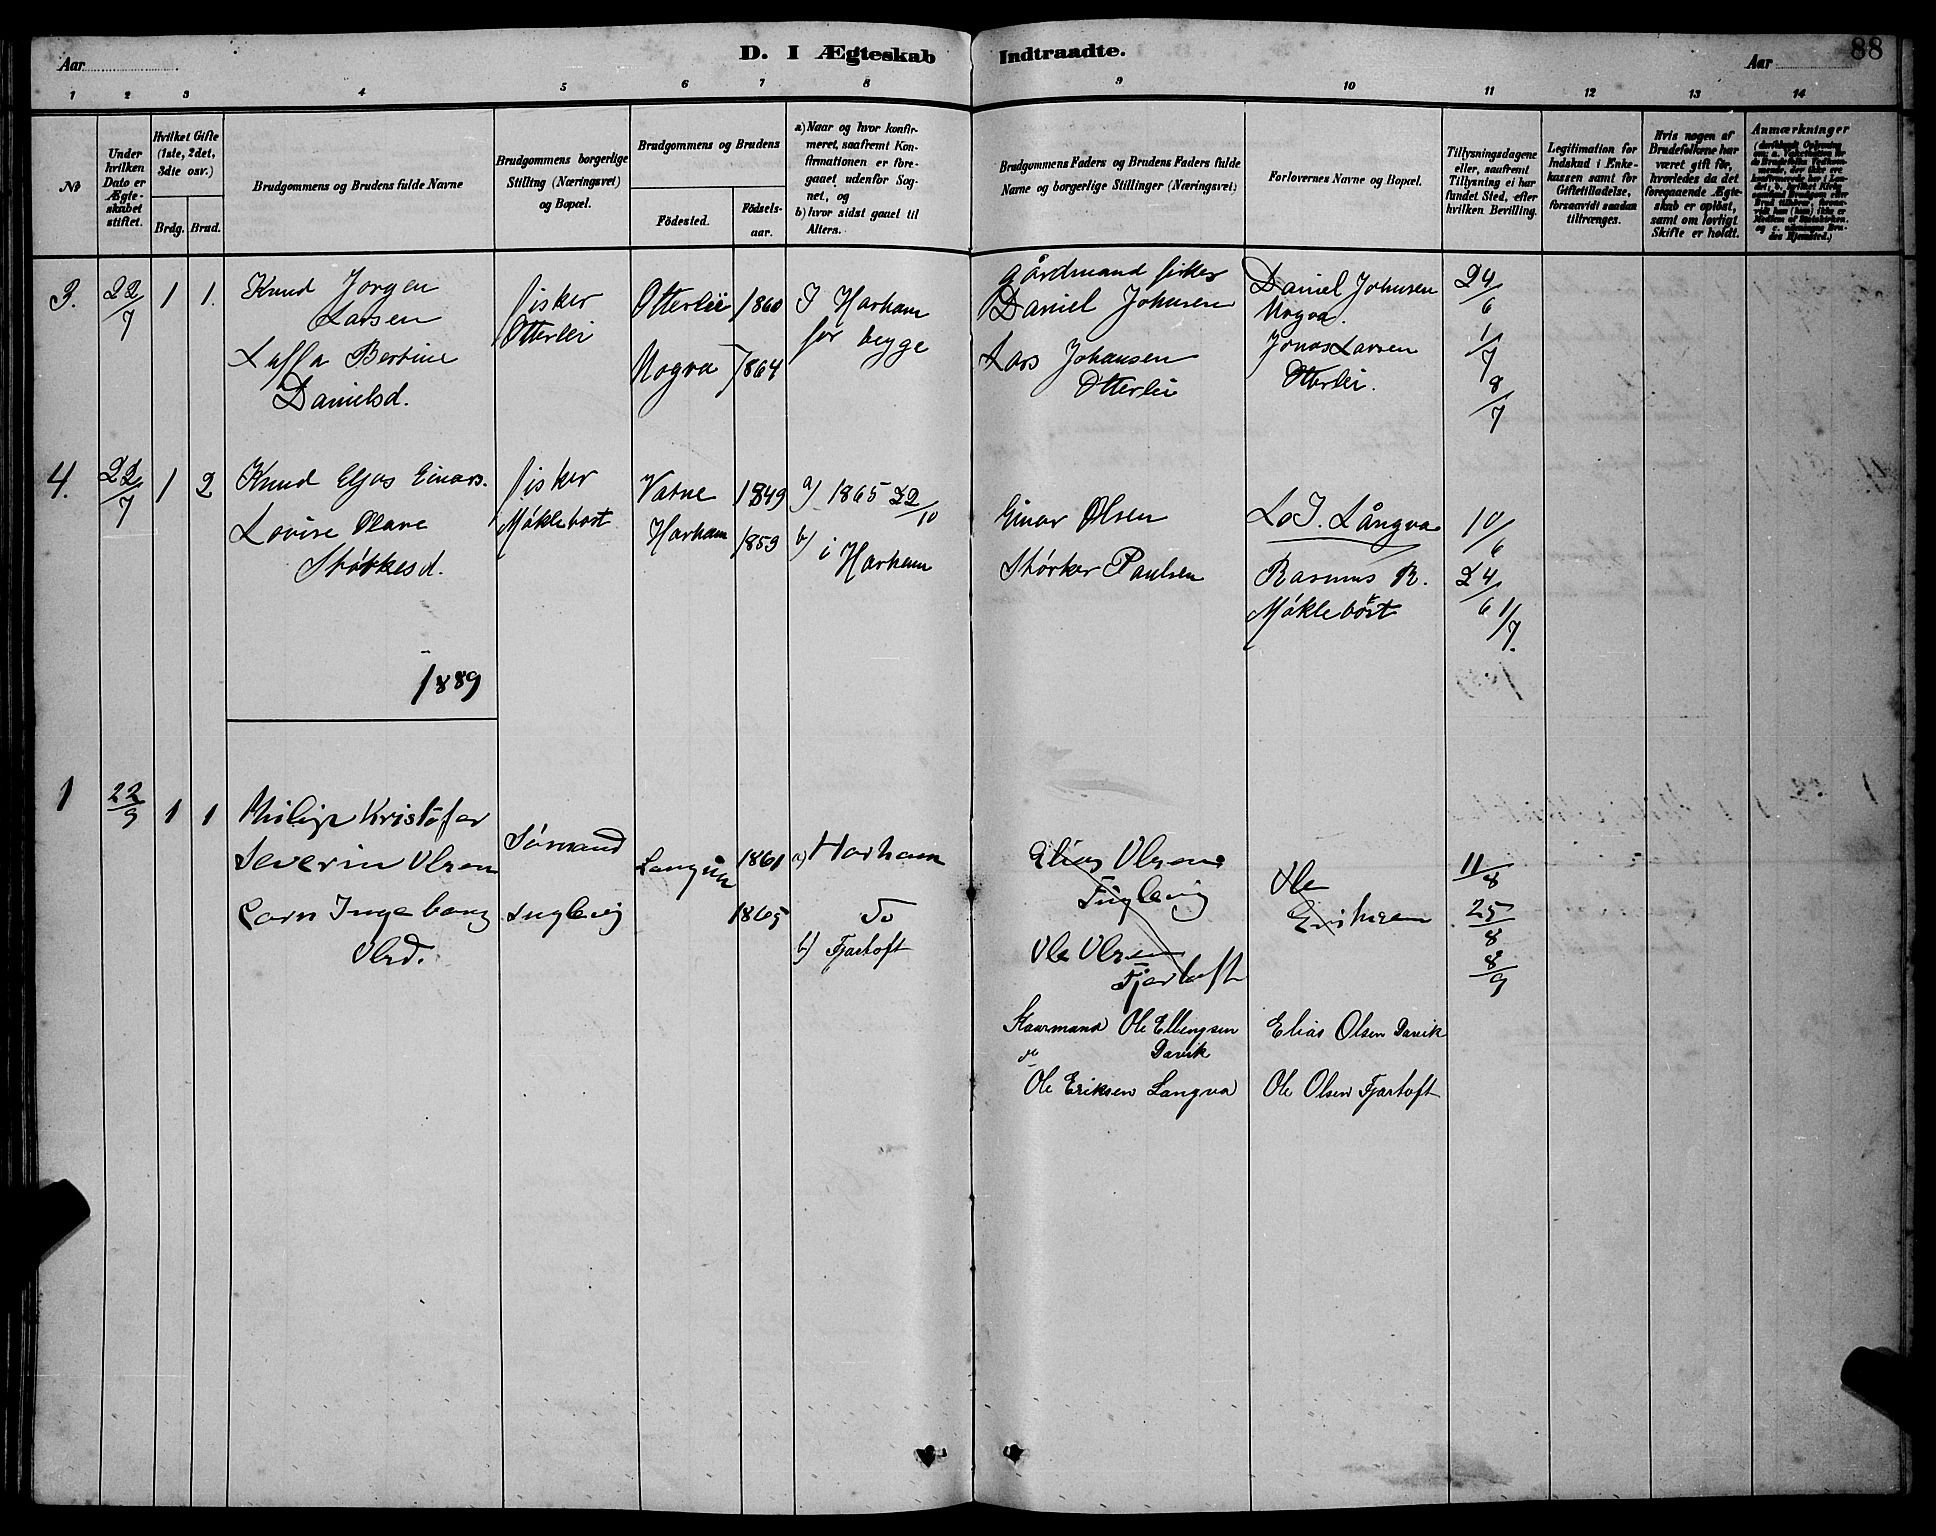 Aar
D. I Ægteskab Indtraadte.
Aar
88
1 2 3 4 5 6 7 8 9 10 11 12 13 14
№
Under hvilken Dato er Ægteskabet stiftet.
Hvilket Gifte (1ste, 2det, 3die osv.)
Brdg. Brud.
Brudgommens og Brudens fulde Navne
Brudgommens borgerlige Stilling (Næringsvei) og Bopæl.
Brudgommens og Brudens
Födested. Födsels-aar.
a) Naar og hvor konfirmeret, saafremt Konfirmationen er foregaaet udenfor Sognet, og
b) hvor sidst gaaet til Alters.
Brudgommens Faders og Brudens Faders fulde Navne og borgerlige Stillinger (Næringsvei)
Forlovernes Navne og Bopæl.
Tillysningsdagene eller, saafremt Tillysning ei har fundet Sted, efter hvilken Bevilling.
Legitimation for Indskud i Enkekassen samt for Giftetilladelse, forsaavidt saadan tiltrænges.
Hvis nogen af Brudefolkene har været gift för, hvorledes da det foregaaende Ægteskab er oplöst, samt om lovligt Skifte er holdt.
Anmærkninger
3. 22/7 1 1.
Knud Jorgen
Larsen
Laffa Bertine
Danielsd.
fisker
Otterlei
Otterlei 1860
Mogva 1864
I Harham
for begge
Gårdmand fisker
Daniel Johnsen
Lars Johansen
Otterlei
Daniel Johnsen
Mogva.
Jonas Larsen
Otterlei.
24/6
1/7
8/7
4. 22/7 1 2
Knud Eljas Einars.
Lovise Olave
Størkesd.
fisker
Møklebost
Vatne 1849
Harham 1859
a) 1865 22/10
b) i Harham
Einar Olsen
Størker Paulsen
L. J. Långva
Rasmus R.
Møklebost
10/6
24/6
1/7.
1889
1 22/9 1 1
Philip Kristofer
Severin Olsen
Karn Ingeborg
Olsd.
Sømand
Fuglevig
Langva
1861
1865
a) Harham
Do
b) Fjartoft
Elias Olsen
Fuglevig
Ole Olsen
Fjartoft
Ole
Eriksen
11/8
25/8
8/9
Ole Ellingsen
Davik
Ole Eriksen Langva
Elias Olsen Davik
Ole Olsen Fjartoft